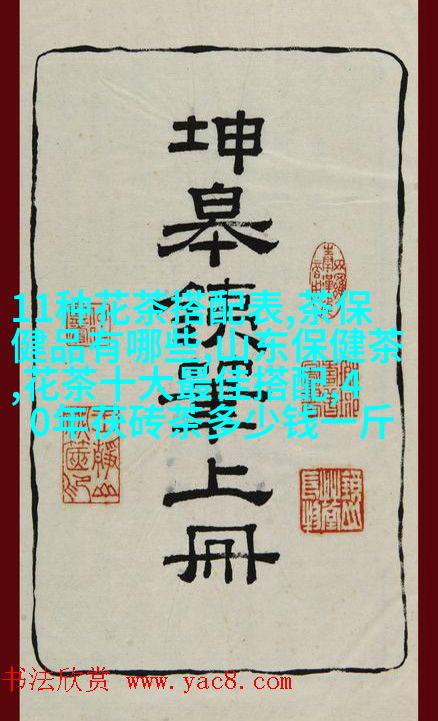 坤皋銕筆上冊
11种花茶搭配表,茶保
健品有哪些,山东保健茶
,花茶十大最佳搭配,4
0年茯砖茶多少钱一斤
书法欣赏 www.yac8.com